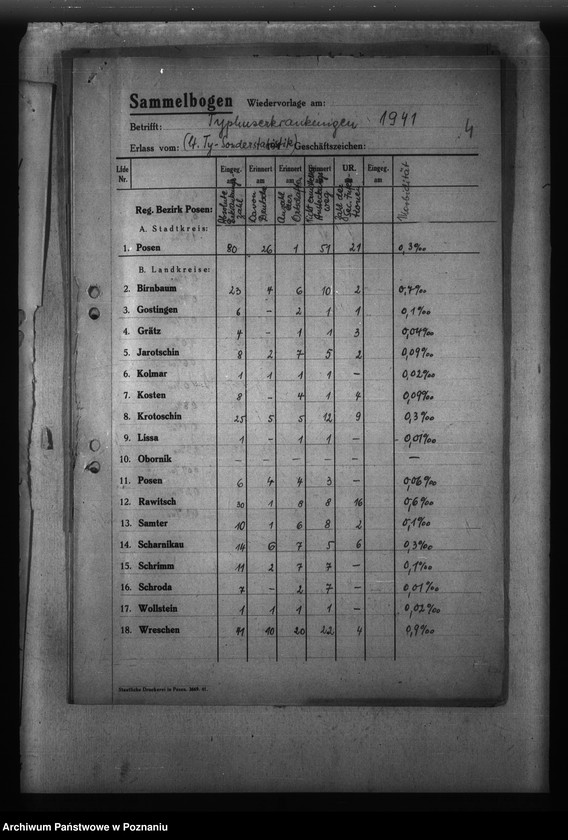 Sammelbogen Wiedervorlage am:
Betrifft: Typhuserkrankungen 1941 4
Erlass vom: (4. Ty-Sonderstatistik) Geschäftszeichen:
Lfde Nr. Eingeg. am Erinnert am Erinnert am Erinnert am UR. Eingeg. am
Reg. Bezirk Posen: Absolute Zahl Davon Deutsche Anzahl der Zahl der Morbidität
A. Stadtkreis:
1. Posen 80 26 1 51 21 0,3‰
B. Landkreise:
2. Birnbaum 23 4 6 10 2 0,7‰
3. Gostingen 6 – 2 1 1 0,1‰
4. Grätz 4 – 1 1 3 0,04‰
5. Jarotschin 8 2 7 5 2 0,09‰
6. Kolmar 1 1 1 1 – 0,02‰
7. Kosten 8 – 4 1 4 0,09‰
8. Krotoschin 25 5 5 12 9 0,3‰
9. Lissa 1 – 1 1 – 0,01‰
10. Obornik – – – – – –
11. Posen 6 4 4 3 – 0,06‰
12. Rawitsch 30 1 8 8 16 0,6‰
13. Samter 10 1 6 8 2 0,1‰
14. Scharnikau 14 6 7 5 6 0,3‰
15. Schrimm 11 2 7 7 – 0,1‰
16. Schroda 7 – 2 7 – 0,01‰
17. Wollstein 1 1 1 1 – 0,02‰
18. Wreschen 71 10 20 22 4 0,9‰
Staatliche Druckerei in Posen.
Archiwum Państwowe w Poznaniu